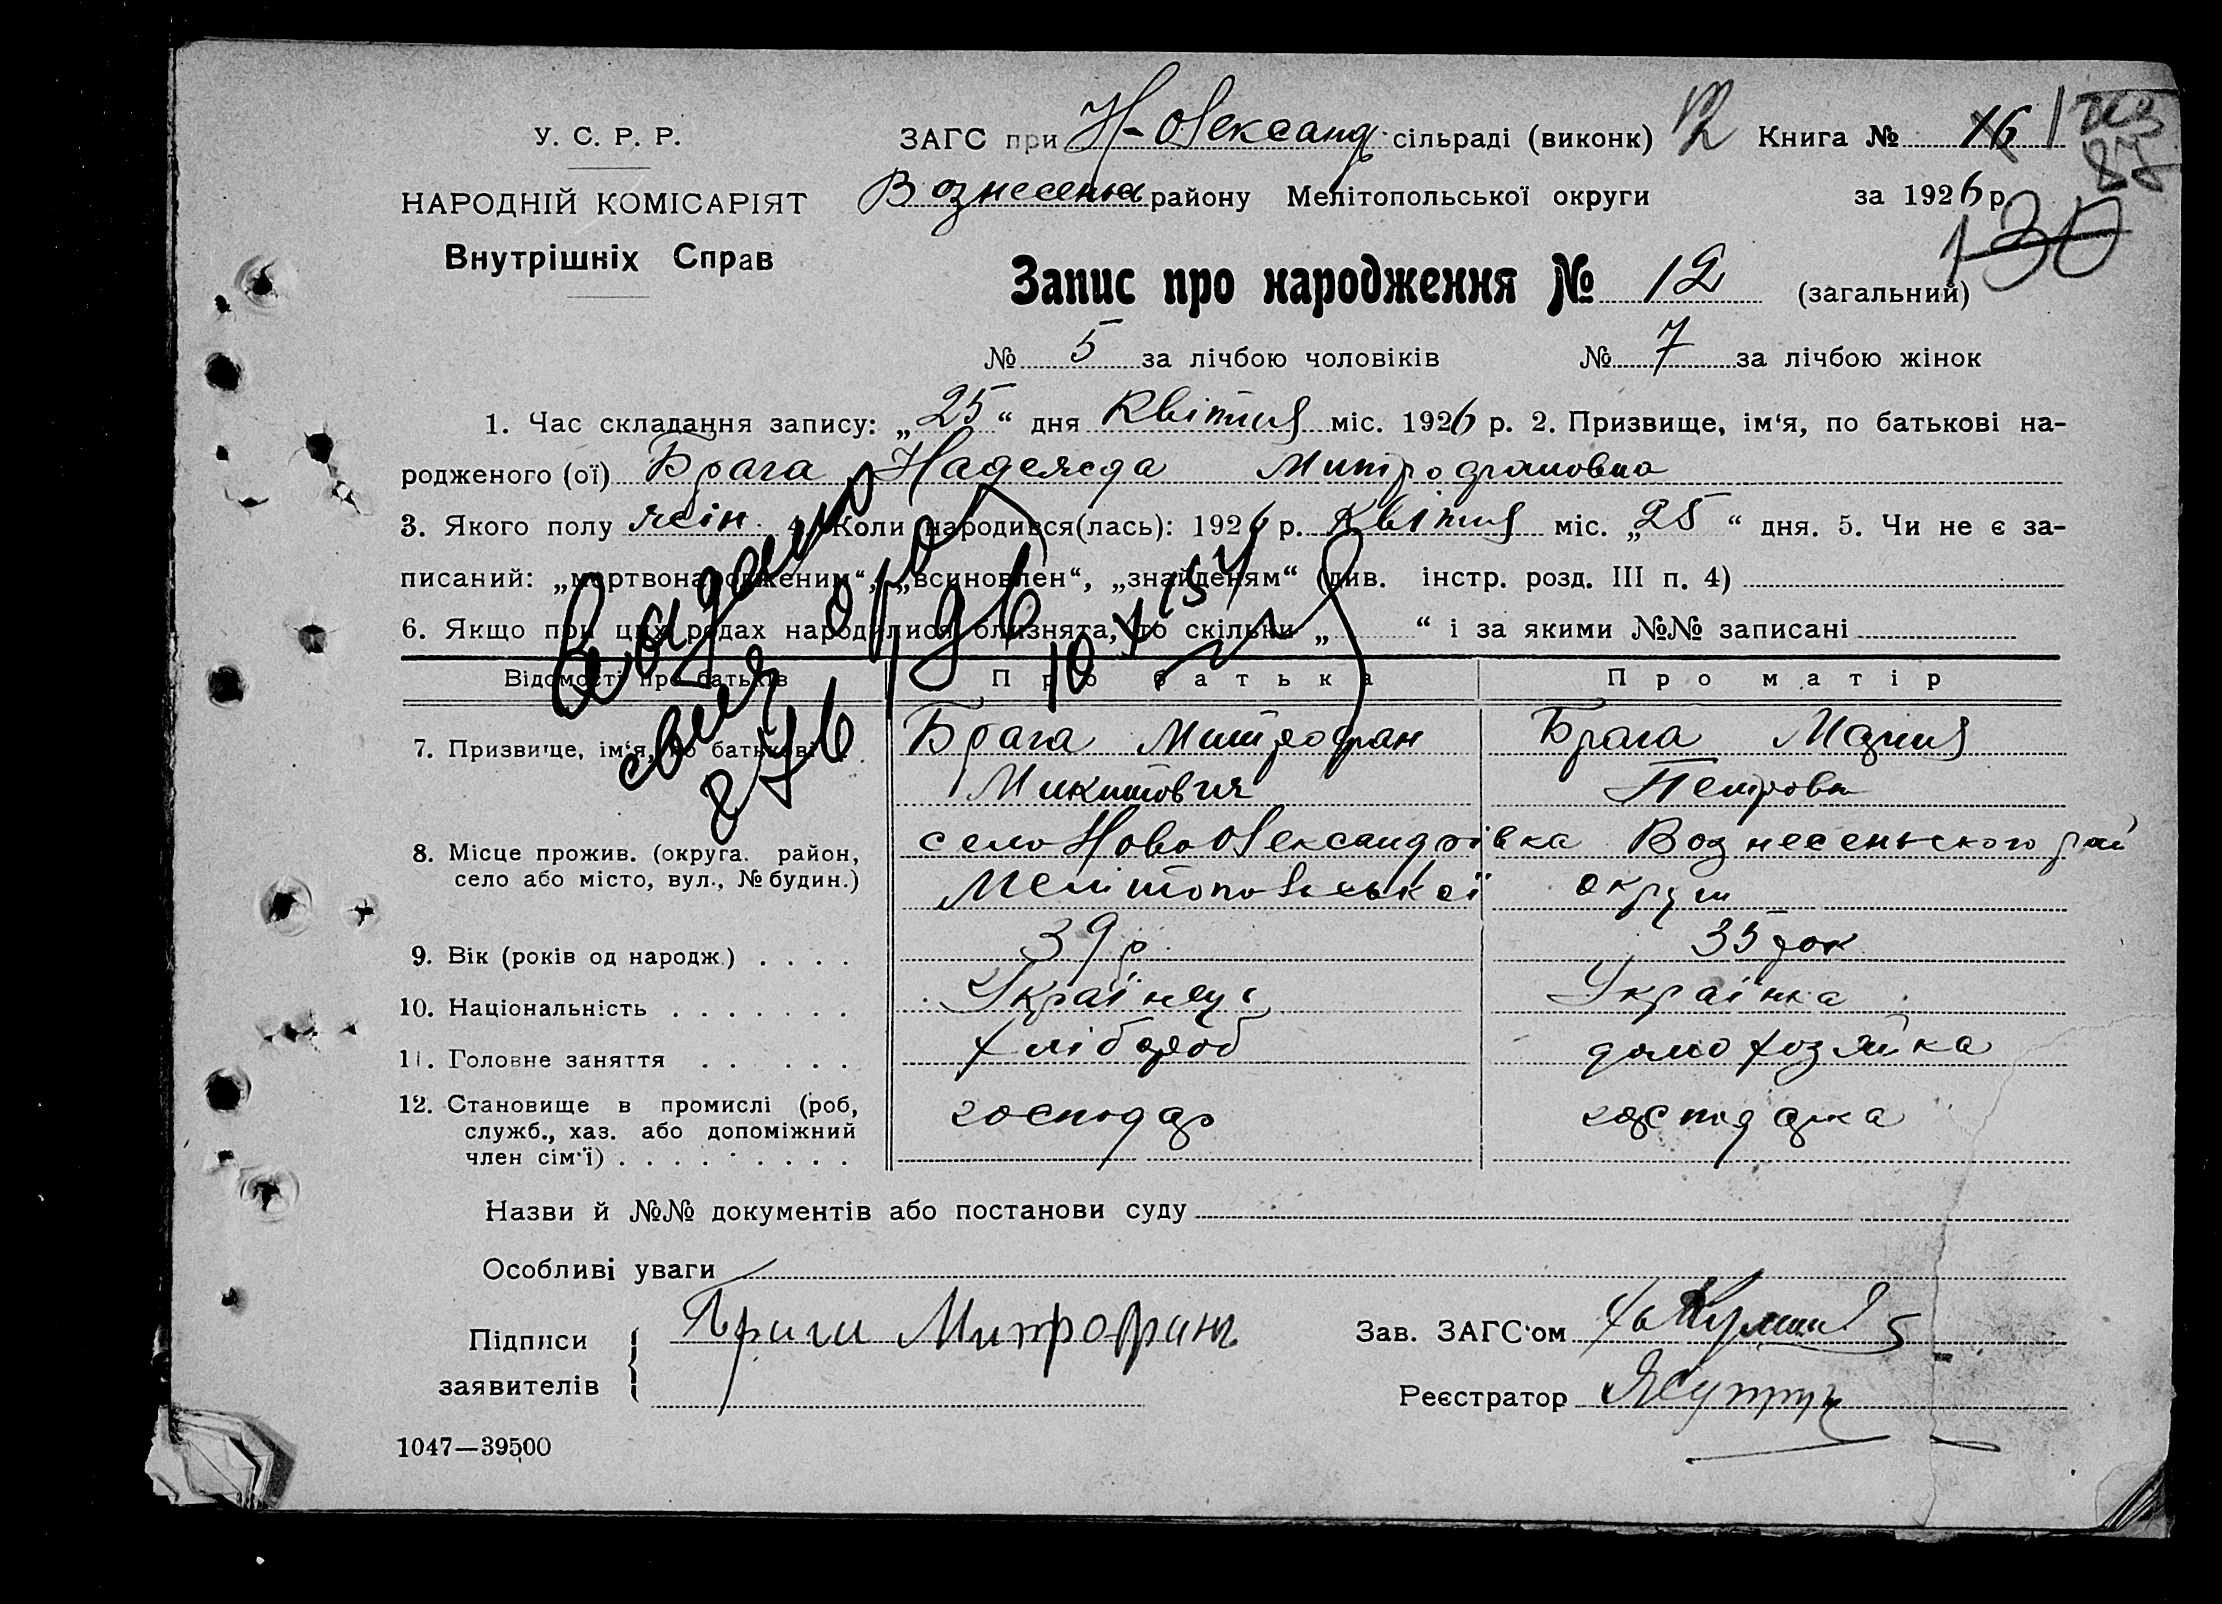 У. С. Р. Р.
НАРОДНІЙ КОМІСАРІЯТ
Внутрішніх Справ
ЗАГС при Н-Олександ. сільраді (виконк) 12 Книга № 16
Вознесенк району Мелітопольської округи за 1926 р.
130
Запис про народження № 12 (загальний)
№ 5 за лічбою чоловіків № 7 за лічбою жінок
1. Час складання запису: „25“ дня Квітня міс. 1926 р. 2. Призвище, ім‘я, по батькові на-
родженого (ої) Брага Надежда Митрофановна
3. Якого полу жін. 4. Коли народився(лась): 1926 р. Квітня міс. „25“ дня. 5. Чи не є за-
писаний: „мертвонародженим“, „всиновлен“, „знайденям“ (див. інстр. розд. III п. 4)
6. Якщо при цих родах народилися близнята, то скільки „ “ і за якими №№ записані
Відомості про батьків Про батька Про матір
7. Призвище, ім‘я, по батькові Брага Митрофан Брага Мария
Микитович Петровн
8. Місце прожив. (округа. район, село або місто, вул., № будин.) село НовоОлександрівка Вознесенського рай
Мелітопольської округи
9. Вік (років од народж.) . . . . 39 р. 35 рок
10. Національність . . . . . . . Українець Українка
11. Головне заняття . . . . . . хлібороб домохозяйка
12. Становище в промислі (роб, господар господарка
служб., хаз. або допоміжний
член сім‘ї) . . . . . . . . .
Назви й №№ документів або постанови суду
Особливі уваги
Підписи заявителів Брага Митрофан Зав. ЗАГС‘ом
Реєстратор
1047—39500